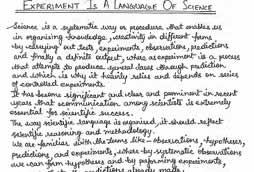 EXPERIMENT IS A LANGUAGE OF SCIENCE
Science is a systematic way or procedure that enables us
in organising knowledge, creativity in different forms
by carrying out tests, experiments, observations, predictions
and finally a definite output, where as experiment is a process
that attempts to produce general laws through prediction
and which is why it heavily relies and depends on series
of controlled experiments.
It has become significant and clear and prominent in recent
years that communication among scientists is extremely
essential for scientific success.
The way scientific language is organised, it should reflect
scientific reasoning and methodology.
We are familiar with the terms like - observations, hypotheses,
Predictions, and experiments, where-by systematic observations
we can form hypotheses and by performing experiments,
predictions already made